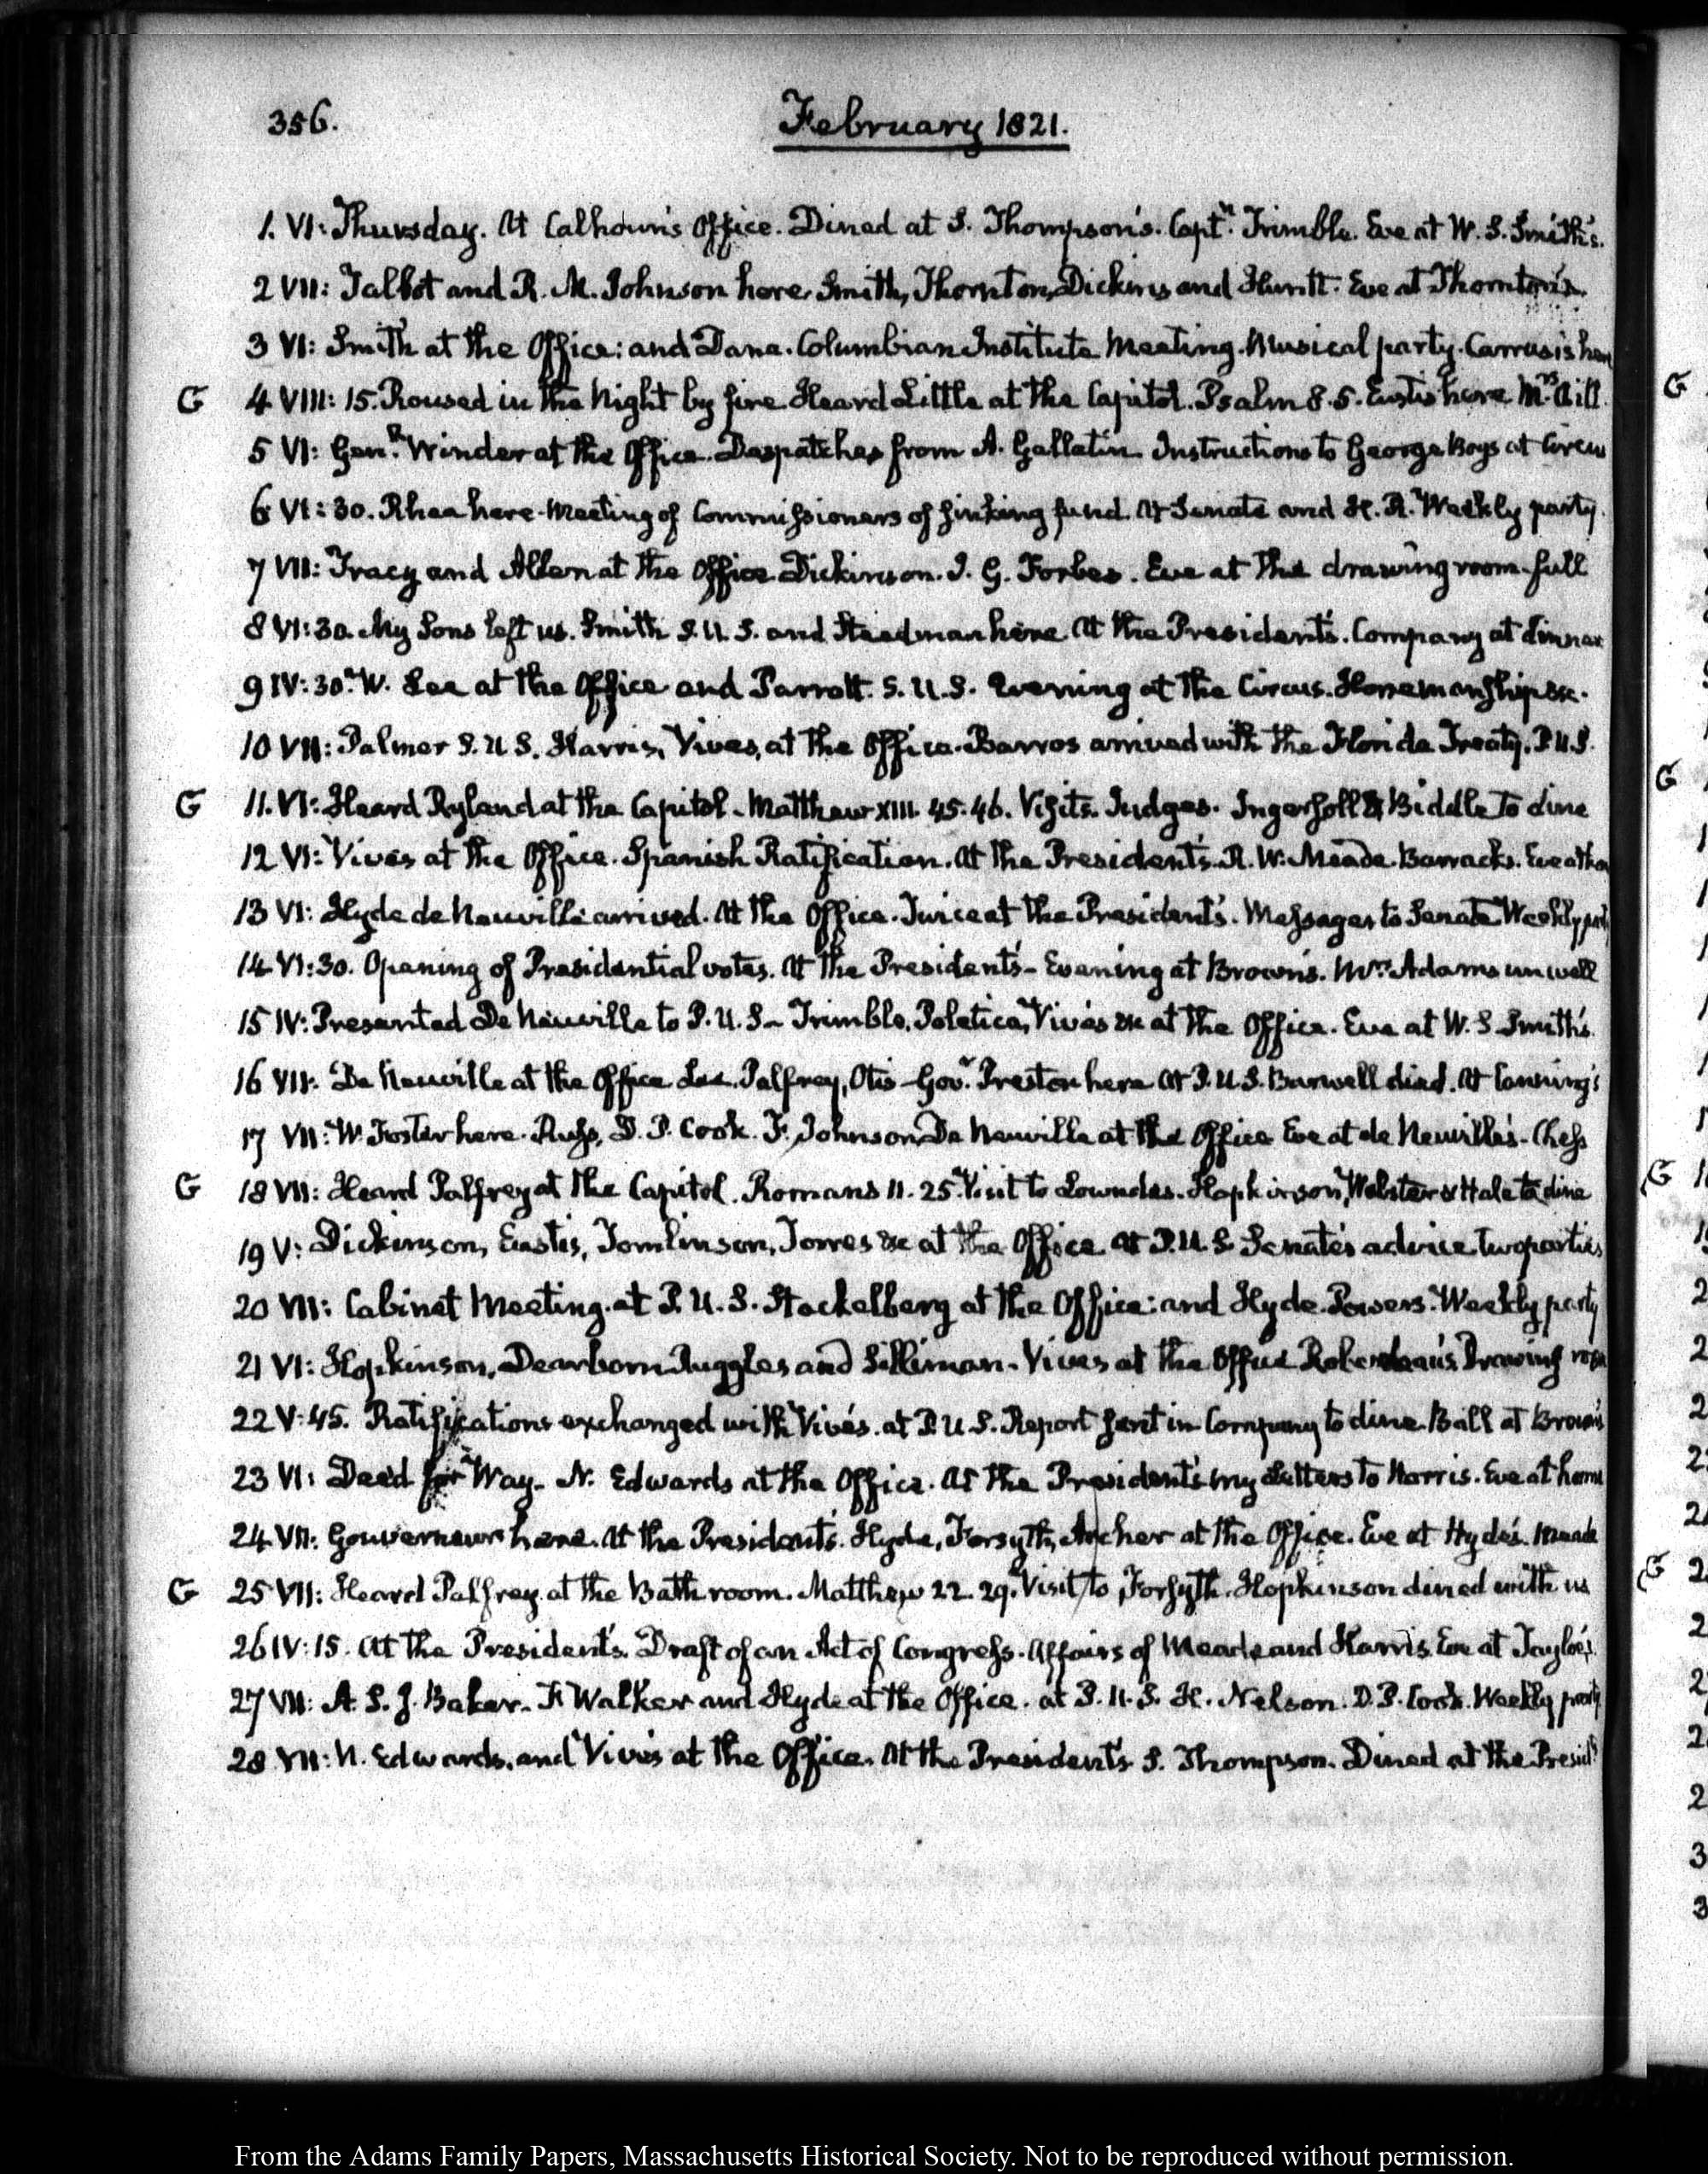 356.
February 1821.
1. VI: Thursday. At Calhoun's Office. Dined at S. Thompson's. Captn. Trimble. Eve at W. S. Smith's.
2 VII: Talbot and R. M. Johnson here Smith, Thornton, Dickins and Huntt. Eve at Thornton's.
3 VI: Smith at the Office: and Dana. Columbian Institute Meeting. Musical party. Carrusi's here
G 4 VIII: 15. Roused in the Night by fire Heard Little at the Capitol. Psalm 8. 5. Eustis here Mrs. A ill.
5 VI: Genl. Winder at the Office. Despatches from A. Gallatin. Instructions to George Boys at Circus
6 VI: 30. Rhea here. Meeting of Commissioners of sinking fund. At Senate and H. R. Weekly party.
7 VII: Tracy and Allen at the Office Dickinson. J. G. Forbes. Eve at the drawing room. full
8 VI: 30. My Sons left us. Smith S. U. S. and Steedman here At the President's. Company at dinner
9 IV: 30. W. Lee at the Office and Parrott. S. U. S. Evening at the Circus. Horsemanship &c.
10 VII: Palmer S. U S. Harris, Vives, at the Office. Barros arrived with the Florida Treaty. P. U. S.
G 11. VI: Heard Ryland at the Capitol. Matthew XIII. 45. 46. Visits. Judges. Ingersoll & Biddle to dine
12 VI: Vives at the Office. Spanish Ratification. At the President's. R. W. Meade. Barracks. Eve at ho
13 VI: Hyde de Neuville arrived. At the Office. Twice at the President's. Messages to Senate Weekly part
14 VI: 30. Opening of Presidential votes. At the President's. Evening at Brown's. Mrs. Adams unwell
15 IV: Presented De Neuville to P. U. S. Trimble, Poletica, Vives &c at the Office. Eve at W. S Smith's
16 VII. De Neuville at the Office Lee. Palfrey, Otis. Govr. Preston here At P. U. S. Burwell died. At Canning's
17 VII: W. Foster here. Russ, D. P. Cook. F. Johnson De Neuville at the Office Eve at de Neuville's. Chess
G 18 VII: Heard Palfrey at the Capitol. Romans 11. 25. Visit to Lowndes. Hopkinson, Webster & Hale to dine
19 V: Dickinson, Eustis, Tomlinson, Torres &c at the Office At P. U. S. Senate's advice two parties
20 VII: Cabinet Meeting. at P. U. S. Stackelberg at the Office: and Hyde. Powers. Weekly party
21 VI: Hopkinson, Dearborn Ruggles and Silliman. Vives at the Office Roberdeau's Drawing room
22 V: 45. Ratifications exchanged with Vives. at P. U. S. Report sent in Company to dine. Ball at Brown's
23 VI: Deed for Way. N. Edwards at the Office. At the President's my Letters to Harris. Eve at home
24 VII: Gouverneur here. At the President's. Hyde, Forsyth, Archer at the Office. Eve at Hyde's. Meade
G 25 VII: Heard Palfrey at the Bath room. Matthew 22. 29. Visit to Forsyth. Hopkinson dined with us
26 IV: 15. At the President's. Draft of an Act of Congress. Affairs of Meade and Harris. Eve at Tayloe's.
27 VII: A. S. J. Baker. F. Walker and Hyde at the Office. at P. U. S. H. Nelson. D. P. Cook. Weekly party
28 VII: N. Edwards, and Vives at the Office. At the President's S. Thompson. Dined at the Presidt's
From the Adams Family Papers, Massachusetts Historical Society. Not to be reproduced without permission.